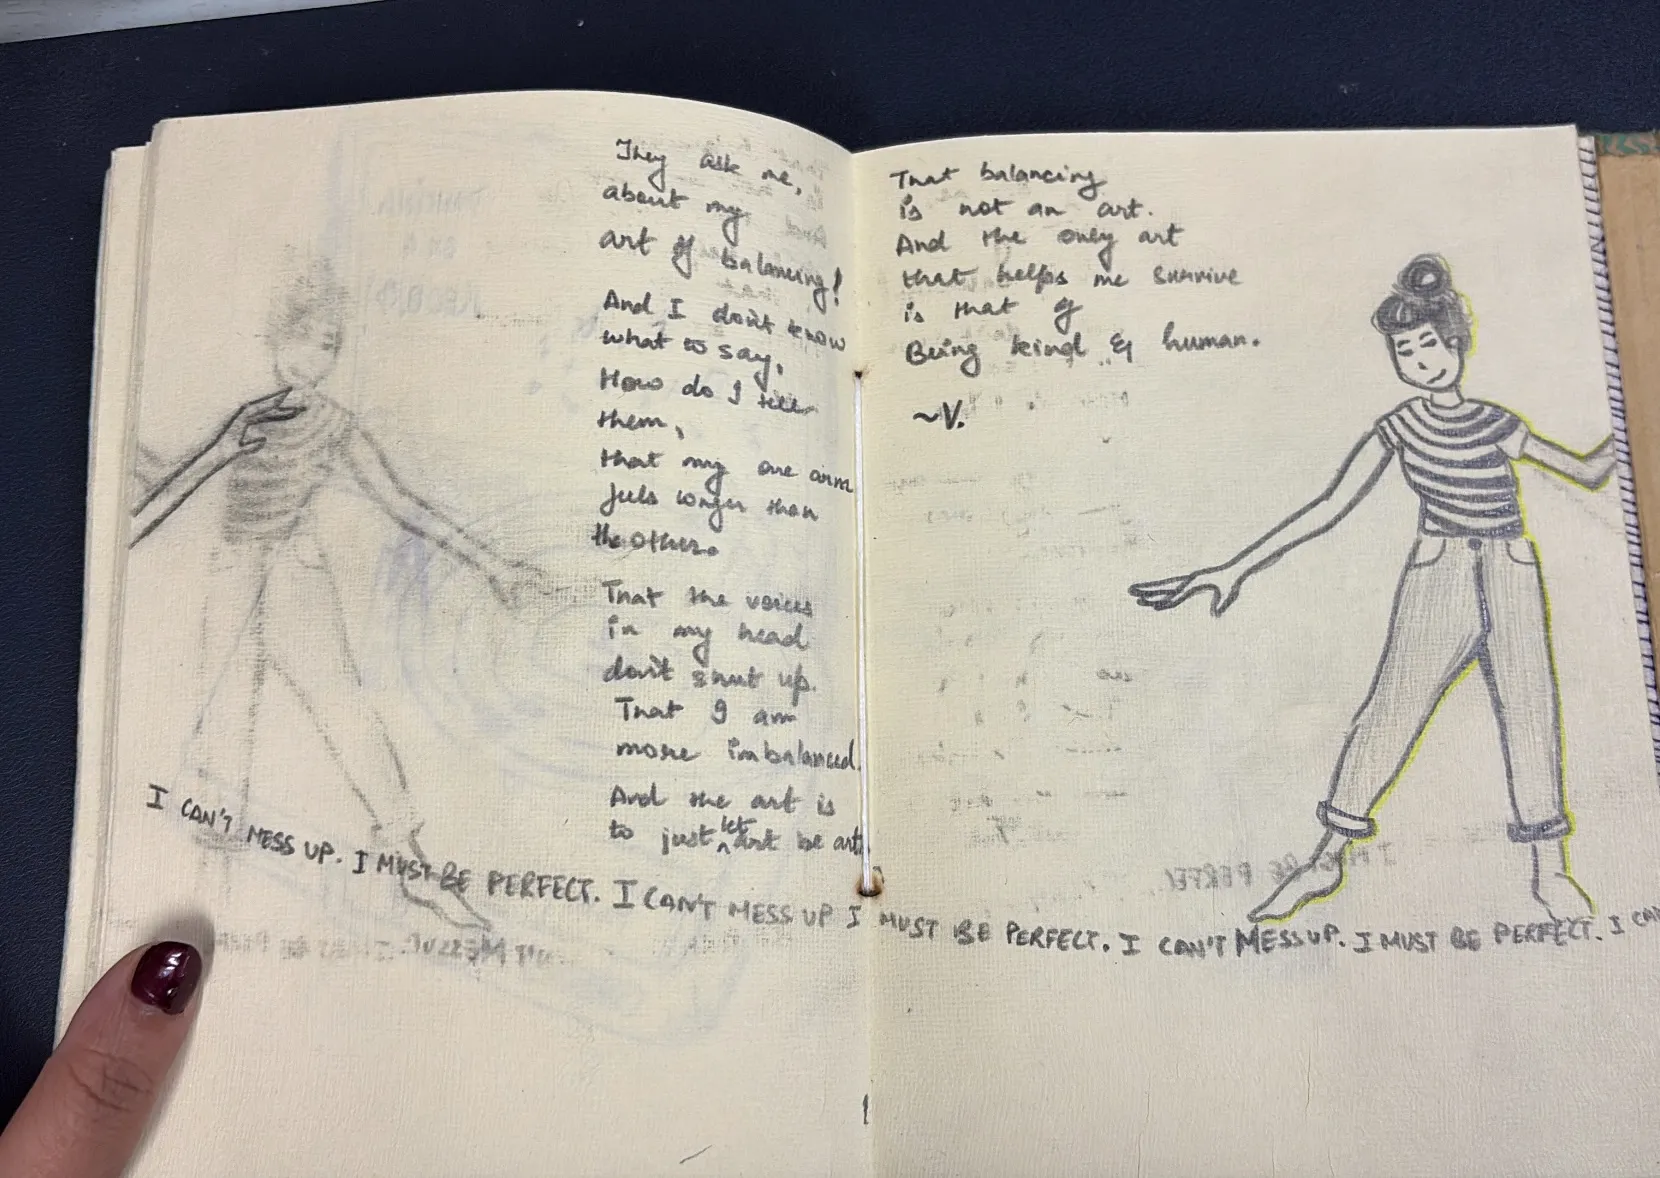 They ask me,
about my
art of balancing!
And I don't know
what to say,
How do I tell
them,
that my one arm
feels longer than
the other.
That the voices
in my head
don't shut up.
That I am
more imbalanced.
And the art is
to just let art be art.
That balancing
is not an art.
And the only art
that helps me survive
is that of
Being kind & human.
~V.
I CAN'T MESS UP. I MUST BE PERFECT. I CAN'T MESS UP I MUST BE PERFECT. I CAN'T MESS UP. I MUST BE PERFECT. I CAN